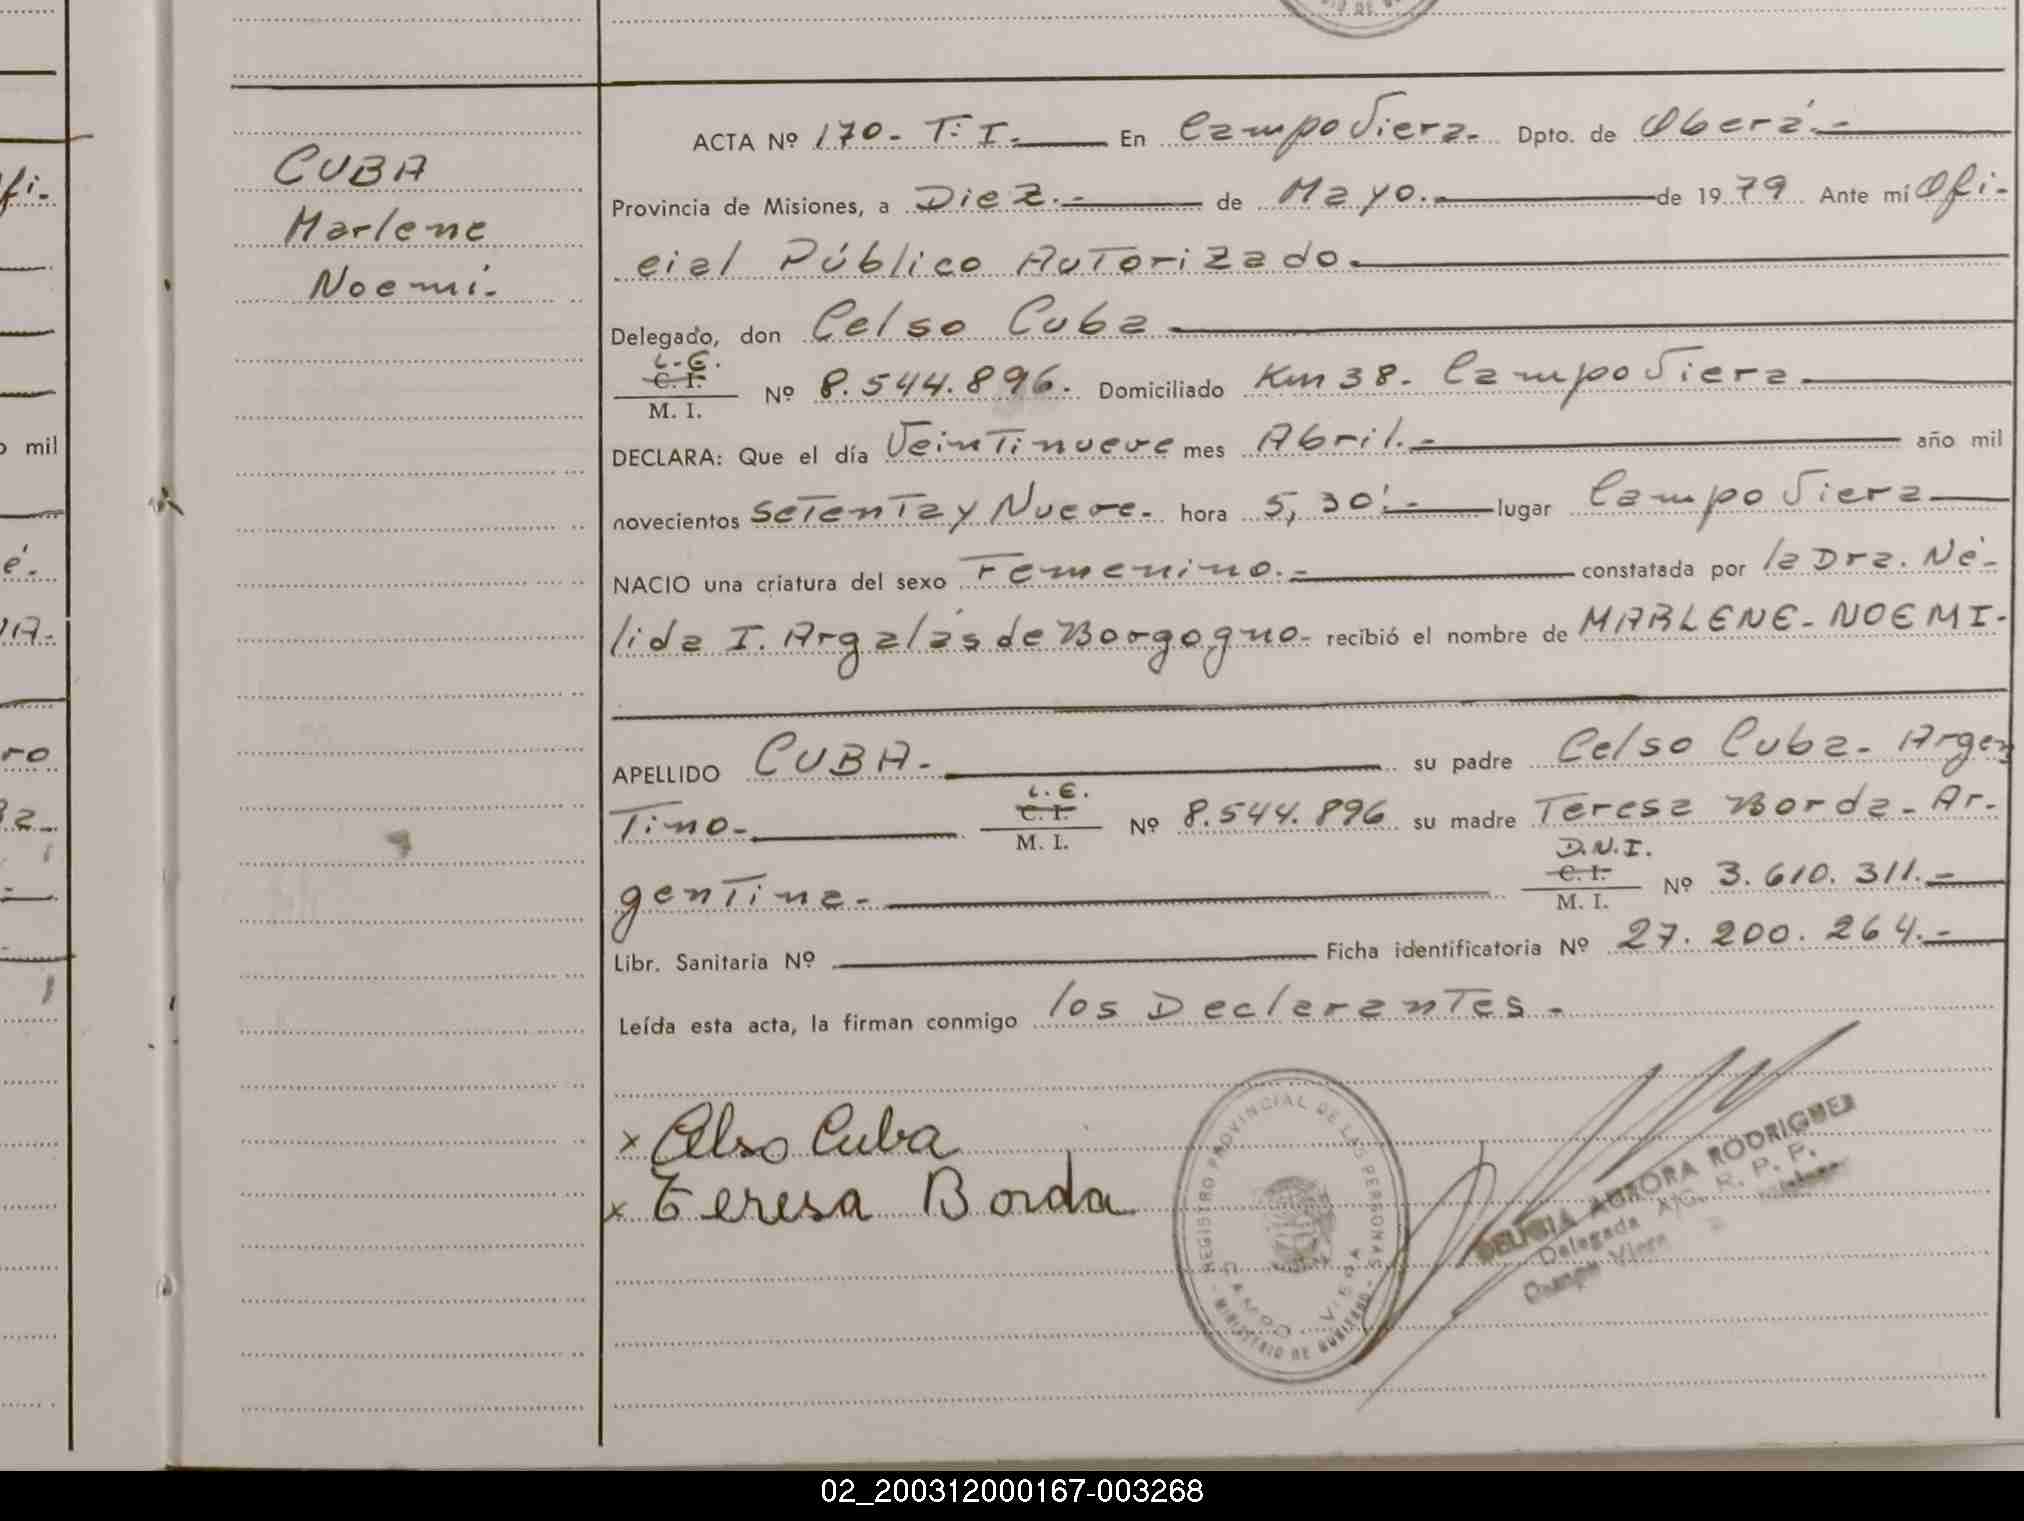 fi.
o mil
é.
A.
ro
CUBA
Marlene
Noemí.
ACTA Nº 170. T: I. En Campo Viera. Dpto. de Oberá.
Provincia de Misiones, a Diez. de Mayo. de 19 79 Ante mí Ofi-
cial Público Autorizado.
Delegado, don Celso Cuba
L.E.
C. I.
M. I.
Nº 8.544.896. Domiciliado Km 38. Campo Viera.
DECLARA: Que el día Veintinueve mes Abril. año mil
novecientos Setenta y Nueve. hora 5,30'. lugar Campo Viera
NACIO una criatura del sexo Femenino. constatada por la Dra. Né-
lida I. Argalás de Borgogno. recibió el nombre de MARLENE - NOEMI.
APELLIDO CUBA. su padre Celso Cuba - Argen
tino. L.E. C. I. M. I. Nº 8.544.896 su madre Teresa Borda - Ar-
gentina. D.N.I. C. I. M. I. Nº 3.610.311.
Libr. Sanitaria Nº Ficha identificatoria Nº 27.200.264.
Leída esta acta, la firman conmigo los Declarantes.
x Celso Cuba
x Teresa Borda
REGISTRO PROVINCIAL DE LAS PERSONAS
CAMPO VIERA
MINISTERIO DE GOBIERNO
DELICIA AURORA RODRIGUEZ
Delegada A/C. R. P. P.
Campo Viera
02_200312000167-003268